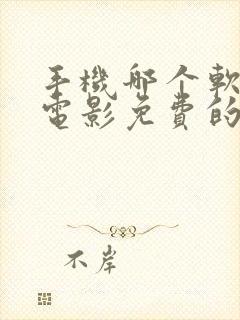 手機哪个軟
電影免費的
不岸